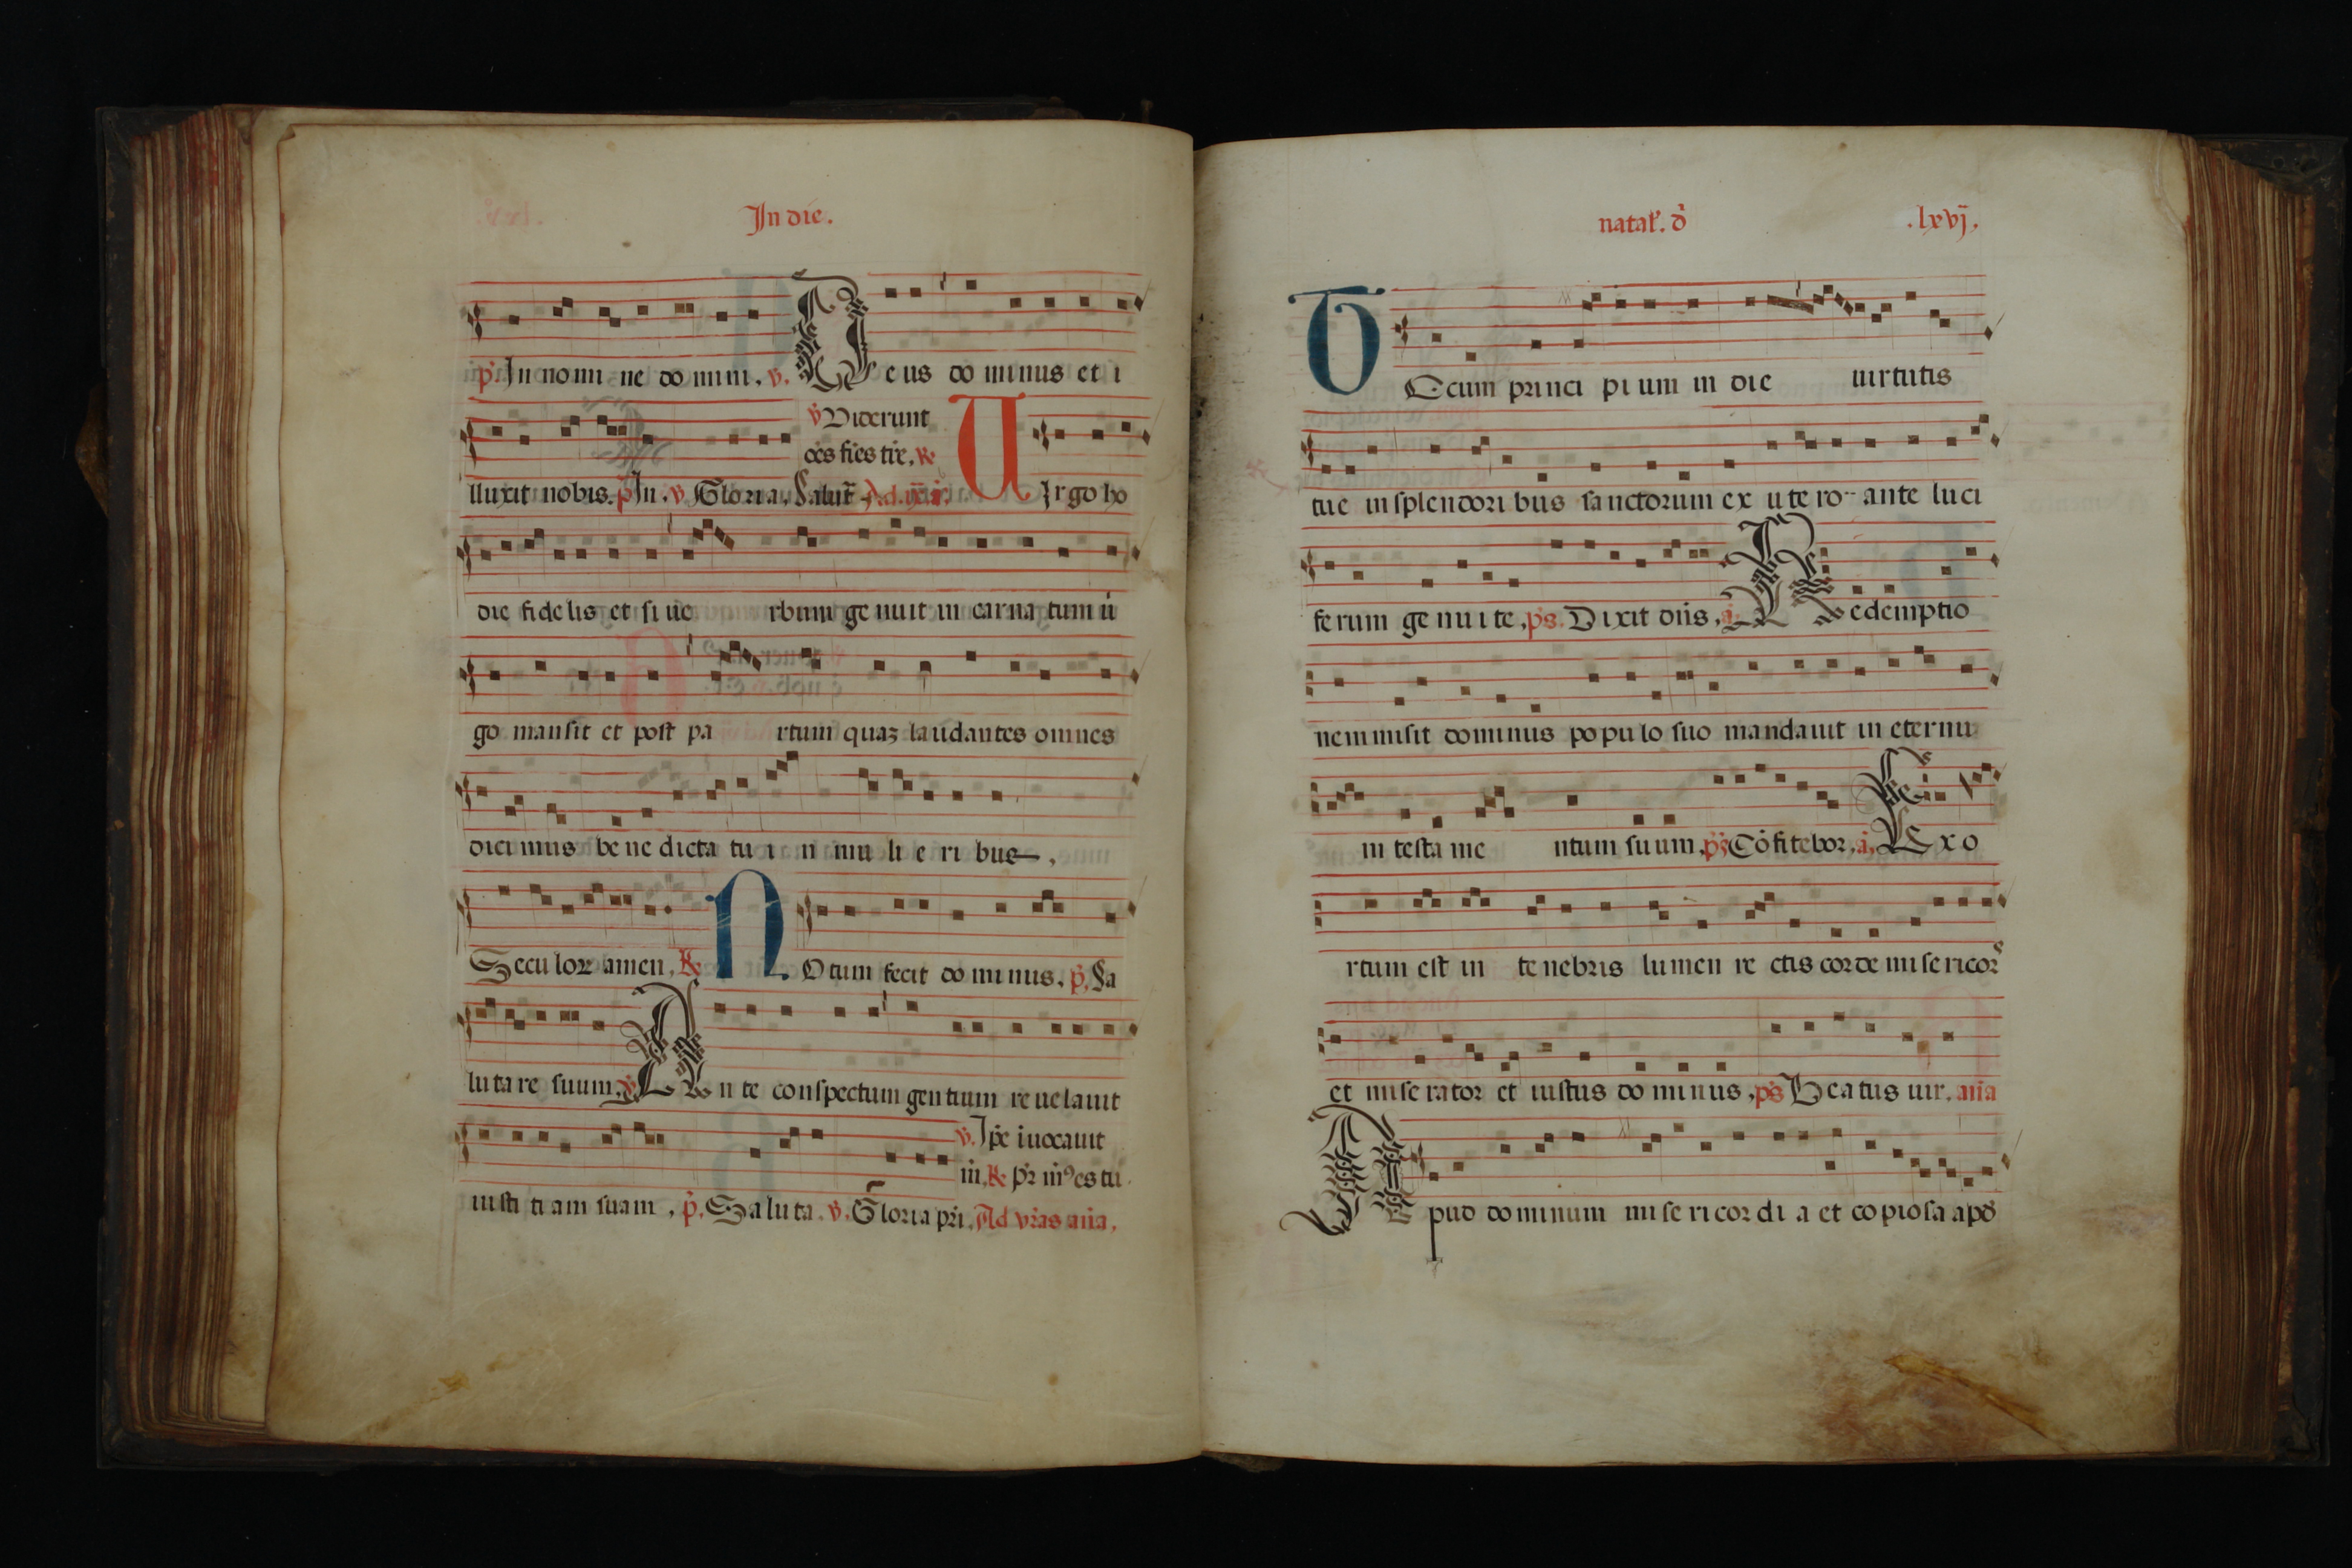 In die.
p̃. In nomine domini. v. Deus dominus et i
lluxit nobis. p̃ In. v. Gloria. Salut̃ Ad.
v̓ Viderunt
oẽs fiẽs tr̃e. ℟
Virgo ho
die fidelis et si ue rbum genuit in carnatum ũ
go mansit et post pa rtum quaʒ laudantes omnes
dicimus benedicta tu i n mulieribus.
Seculoꝝ amen. ℟ NOtum fecit dominus. p̃. Sa
lutare suum. v̓ Ante conspectum gentium reuelauit
v̓. Ip̃e iuocauit
iustitiam suam. p̃. Saluta. v̓. Gloria pr̃i. Ad vr̃as añа.
m̃. ℟ pr̃ m̃ꝰ es tu.
natal̃. d̃ .lxvj.
TEcum principium in die uirtutis
tue in splendoribus sanctorum ex utero ante luci
ferum genui te. ps. Dixit dñs. ã Redemptio
nem misit dominus populo suo mandauit in eternũ
in testame ntum suum. ps Cõfitebor. ã. Exo
rtum est in tenebris lumen rectis corde misericor̃s
et miserator et iustus dominus. ps Beatus uir. añа
Apud dominum misericordia et copiosa apd̃